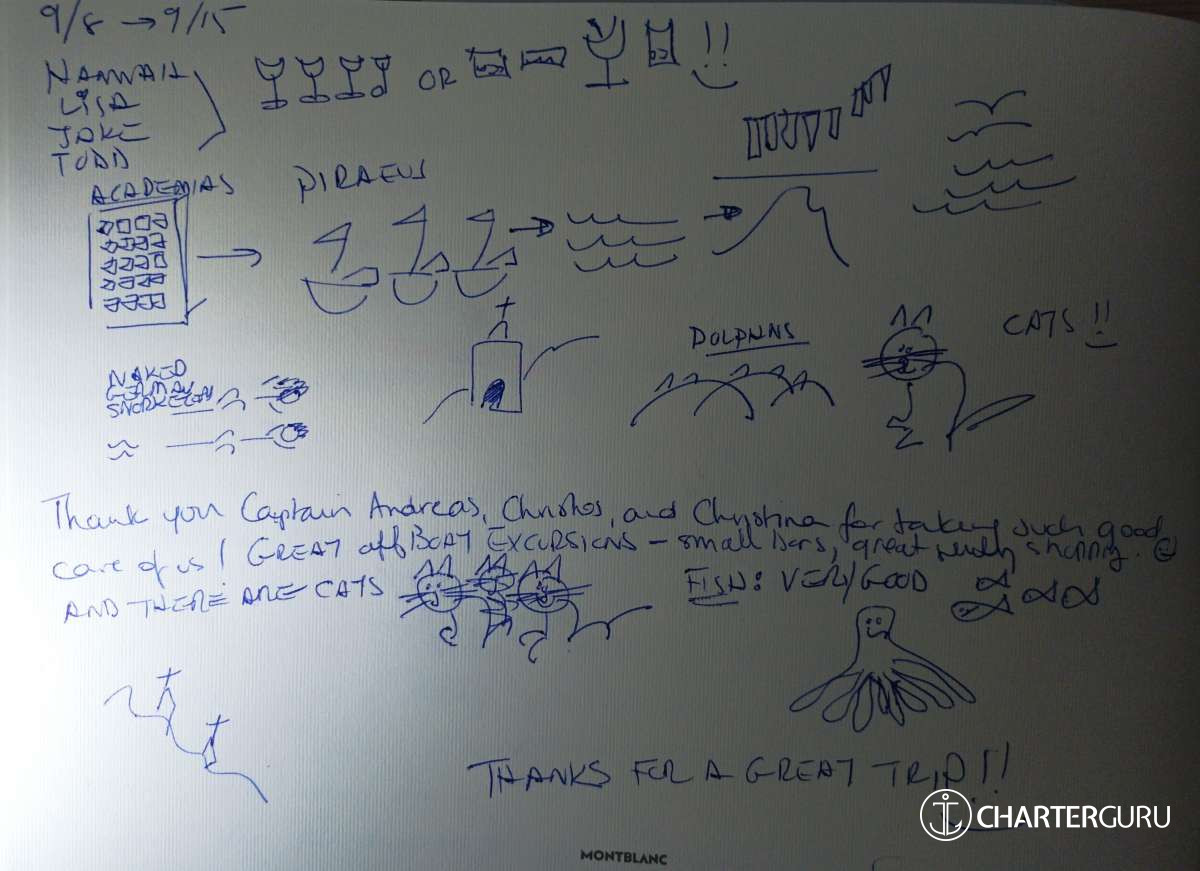 9/8 → 9/15
HANNAH
LISA
JAKE
TODD
OR !!
ACADEMIAS
PIRAEUS
DOLPHINS
CATS !!
NAKED
GERMAN
Thank you Captain Andreas, Christos, and Christina for taking such good
care of us! GREAT off BOAT EXCURSIONS - small bars, great shopping.
AND THERE ARE CATS
FISH: VERY GOOD
THANKS FOR A GREAT TRIP!!
CHARTERGURU
MONTBLANC